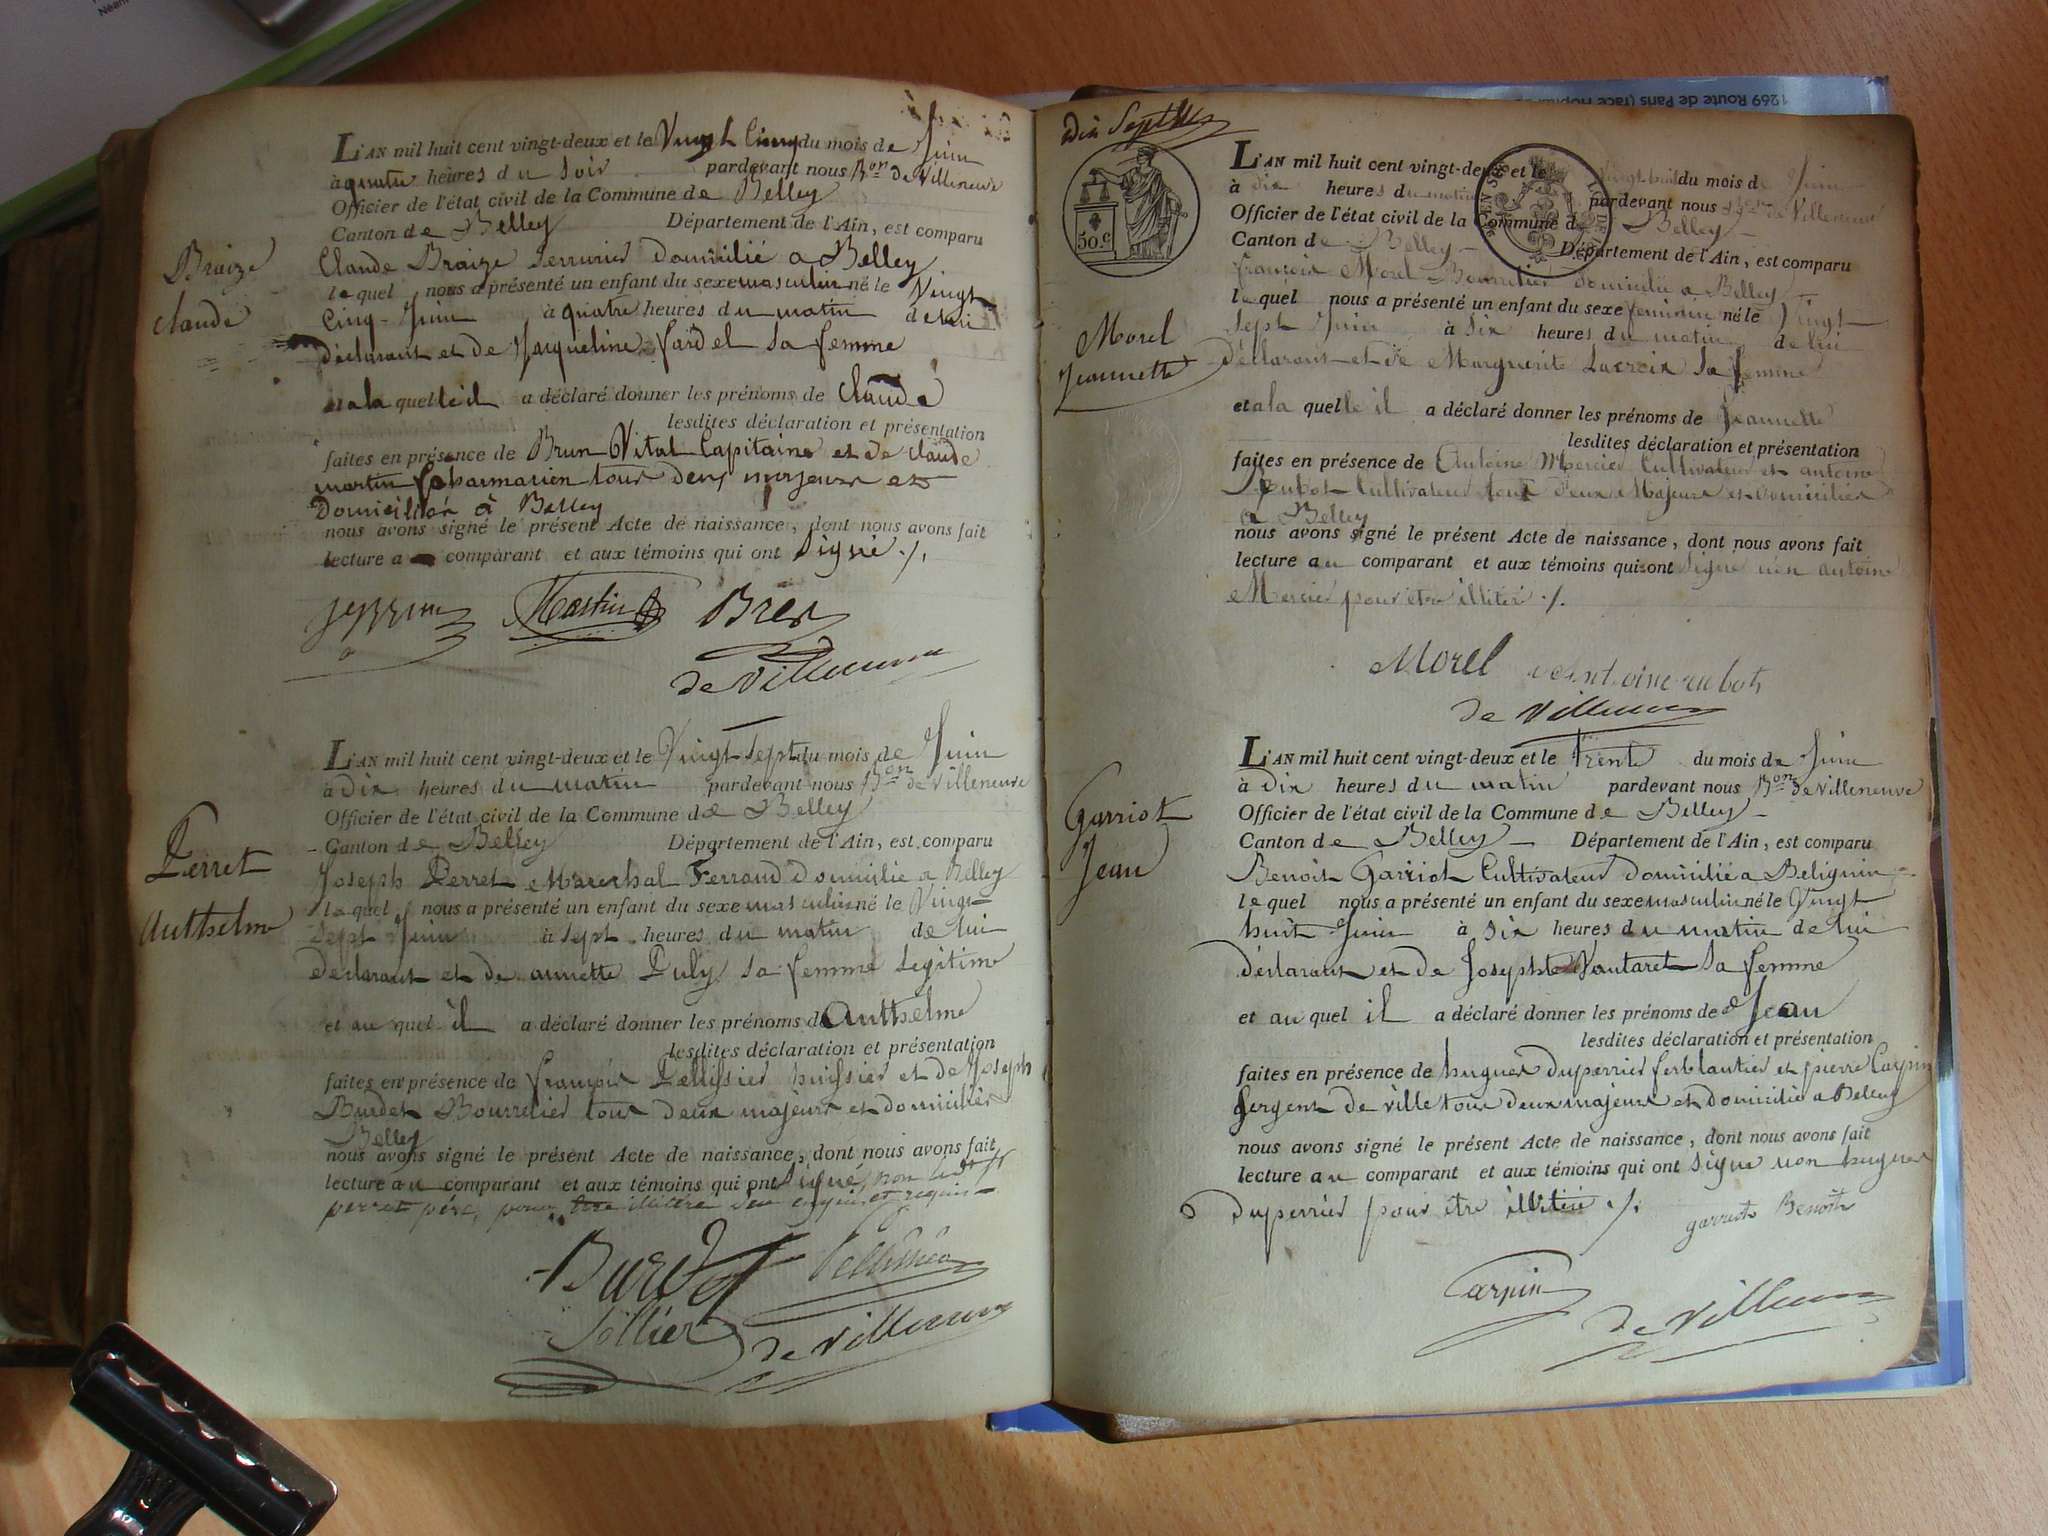 L'AN mil huit cent vingt-deux et le Vingt Cinq du mois de Juin
à quatre heures du Soir pardevant nous Bon de Villeneuve
Officier de l'état civil de la Commune de Belley
Canton de Belley Département de l'Ain, est comparu
Braize
Claude
Claude Braize Serrurier domicilié a Belley
lequel nous a présenté un enfant du sexe masculin né le Vingt
Cinq Juin à quatre heures du matin de lui
déclarant et de Jacqueline fardel sa femme
et a la quelle il a déclaré donner les prénoms de Claude
lesdites déclaration et présentation
faites en présence de Brun Vital Capitaine et de Claude
martin pharmacien tous deux majeurs et
Domiciliés à Belley
nous avons signé le présent Acte de naissance, dont nous avons fait
lecture a comparant et aux témoins qui ont Signé ./.
Martin
de Villeneuve
L'AN mil huit cent vingt-deux et le Vingt Sept du mois de Juin
à Dix heures du matin pardevant nous Bon de Villeneuve
Officier de l'état civil de la Commune de Belley
Canton de Belley Département de l'Ain, est comparu
Perret
Anthelme
Joseph Perret Marechal Ferrand domicilié a Belley
lequel nous a présenté un enfant du sexe masculin né le Vingt
Sept Juin à Sept heures du matin de lui
déclarant et de annette Puly sa femme legitime
et au quel il a déclaré donner les prénoms d Anthelme
lesdites déclaration et présentation
faites en présence de françois Pellissier huissier et de Joseph
Burdet Bourrelier tous deux majeurs et domiciliés
Belley
nous avons signé le présent Acte de naissance, dont nous avons fait
lecture au comparant et aux témoins qui ont Signé, non led.t
perret père, pour être illitéré de ce enquis et requis
Burdet Pellissier
Sollier de Villeneuve
dix Sept
50.c
L'AN mil huit cent vingt-deux et le Vingt huit du mois de Juin
à dix heures du matin pardevant nous Bon de Villeneuve
Officier de l'état civil de la Commune de Belley
Canton de Belley Département de l'Ain, est comparu
françois Morel Bourrelier domicilié a Belley
lequel nous a présenté un enfant du sexe feminin né le Vingt
Sept Juin à Six heures du matin de lui
Morel
Jeannette
déclarant et de Marguerite Lacroix sa femme
et a la quelle il a déclaré donner les prénoms de Jeannette
lesdites déclaration et présentation
faites en présence de Antoine Mercier Cultivateur et antoine
Rubot Cultivateur tout deux Majeurs et Domiciliés
a Belley
nous avons signé le présent Acte de naissance, dont nous avons fait
lecture au comparant et aux témoins qui ont Signé non antoine
Mercier pour etre illitéré ./.
Morel antoine rubot
de Villeneuve
L'AN mil huit cent vingt-deux et le Trente du mois de Juin
à Dix heures du matin pardevant nous Bon de Villeneuve
Officier de l'état civil de la Commune de Belley
Canton de Belley Département de l'Ain, est comparu
Garriot
Jean
Benoit Garriot Cultivateur domicilié a Belignin
lequel nous a présenté un enfant du sexe masculin né le Vingt
huit Juin à Six heures du matin de lui
déclarant et de Josephte Vautaret sa femme
et au quel il a déclaré donner les prénoms de Jean
lesdites déclaration et présentation
faites en présence de hugues duperrier ferblantier et pierre Carpin
Sergent de ville tous deux majeurs et domicilié a Belley
nous avons signé le présent Acte de naissance, dont nous avons fait
lecture au comparant et aux témoins qui ont Signé non hugues
Duperrier pour etre illitéré ./.
garriot Benoit
Carpin
de Villeneuve
1269 Route de Paris (face Hôpital